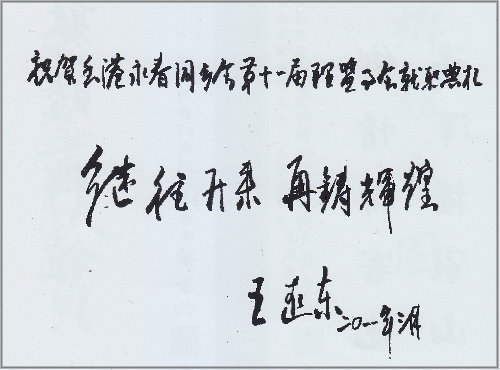 祝贺香港永春同乡会第十一届理监事会就职典礼
继往开来 再铸辉煌
王建东
二〇一一年二月